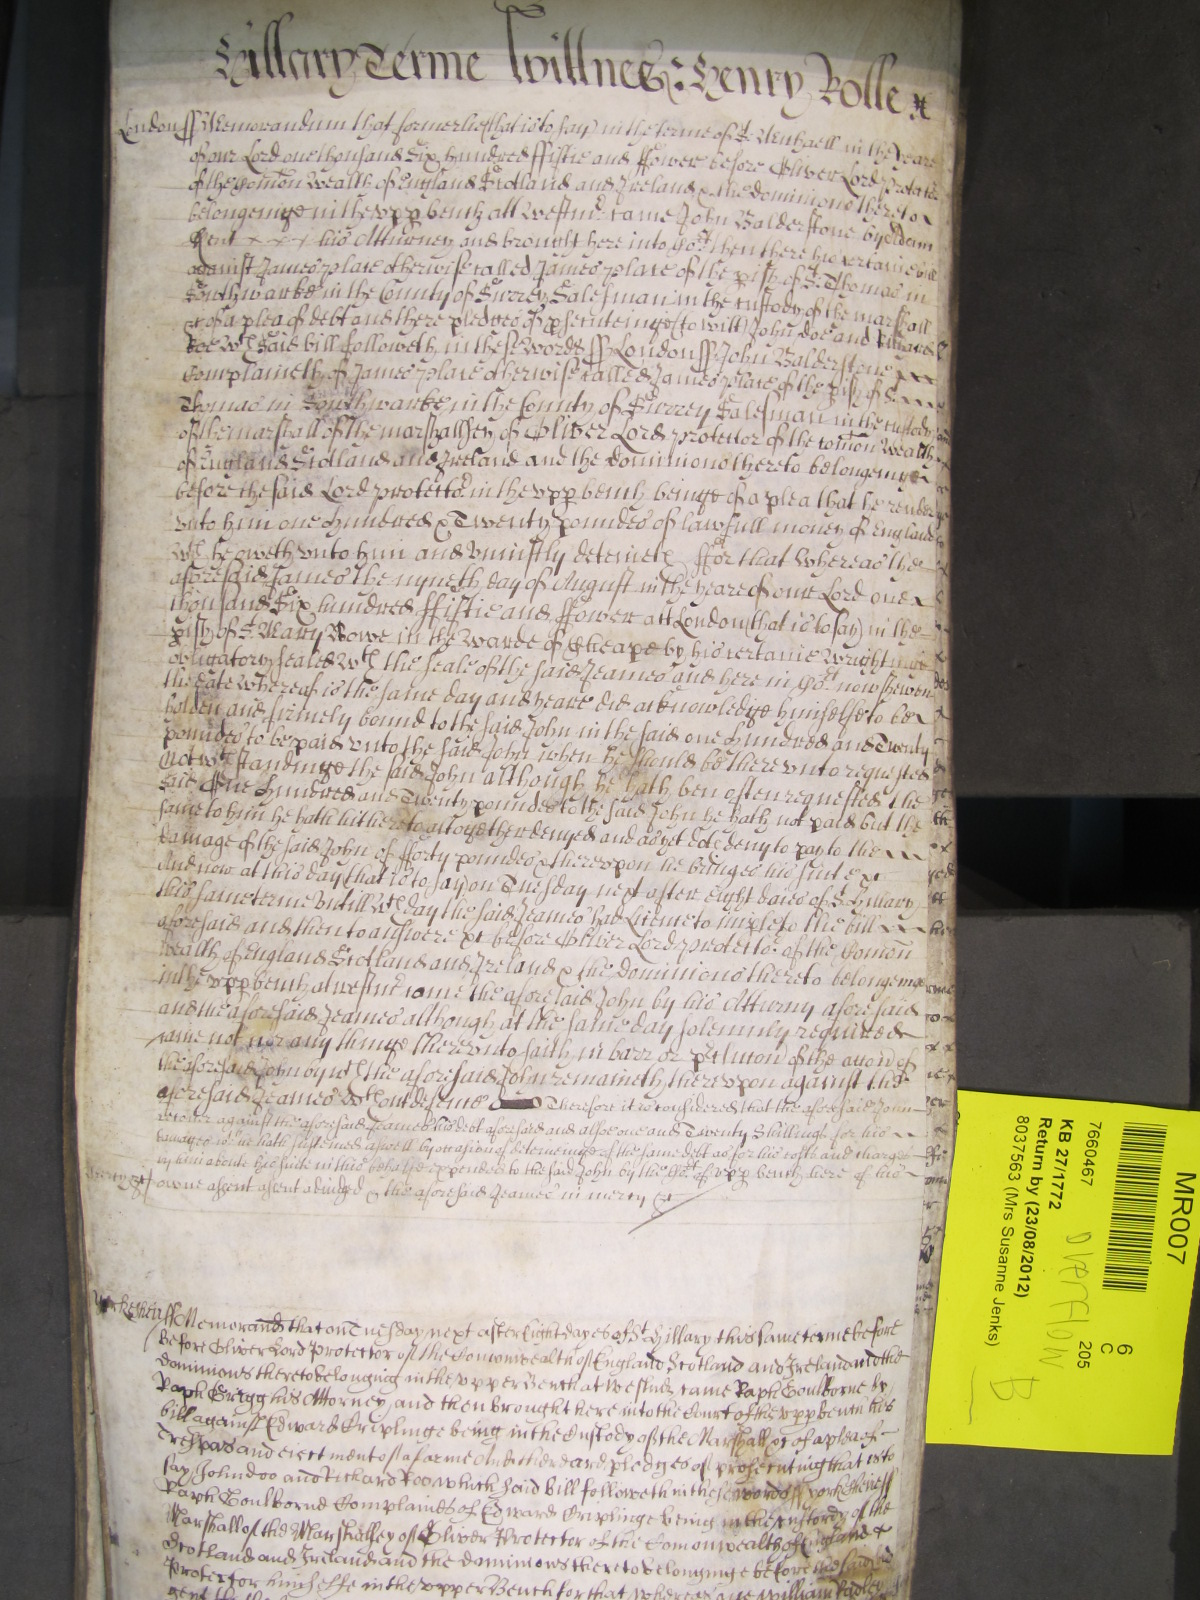 Hillary Terme Wittnes: Henry Rolle
London ss Memorandum that formerlie (that is to say) in the terme of St. Michaell in the yeare
of our Lord one thousand Six hundred ffiftie and ffower before Oliver Lord Protector
of the Comon Wealth of England Scotland and Ireland & the dominions thereto
belongeinge in the vpp bench att Westmr. came John Balderstone by
Kent his Atturney and brought here into Cort then there his certaine bill
against James Place otherwise called James Place of the pish of St. Thomas in
Southwarke in the County of Surrey Salesman in the custody of the marshall
&c of a plea of debt and there pledges of psecuteinge (to witt) John Doe and Richard
Roe wch Said bill followeth in these words ss London ss John Balderstone
Complaineth of James Place otherwise called James Place of the pish of St.
Thomas in Southwarke in the County of Surrey Salesman in the custody
of the marshall of the marshallsey of Oliver Lord Protector of the comon Wealth
of England Scotland and Ireland and the dominions thereto belongeinge
before the said Lord protector in the vpp bench beinge of a plea that he render
vnto him one hundred & Twenty poundes of lawfull money of England
wch he oweth vnto him and vniustly deteineth ffor that Whereas the
aforesaid James the nyneth day of August in the yeare of our Lord one
thousand Six hundred ffiftie and ffower att London (that is to say) in the
pish of St. Mary Bowe in the Warde of Cheape by his certaine Wrightinge
obligatory sealed wth the seale of the said Jeames and here in Cort now shewen
the date whereof is the same day and yeare did acknowledge himselfe to be
holden and firmely bound to the said John in the said one hundred and Twenty
poundes to be paid vnto the said John when he should be therevnto requested
Notwthstandinge the said John although he hath ben often requested the
said One hundred and Twenty poundes to the said John he hath not paid but the
same to him he hath hitherto altogether denyed and as yet doth deny to pay to the
damage of the said John of fforty poundes & therevpon he bringes his suite &c
And now at this day (that is to say) on Tuesday next after eight daies of St. Hillary
this same terme vntill wch day the said Jeames had Licence to imple to the bill
aforesaid and then to answere &c before Oliver Lord Protector of the Comon
wealth of England Scotland and Ireland & the dominions thereto belongeinge
in the vpp bench at westmr came the aforesaid John by his Atturny aforesaid
and the aforesaid Jeames although at the same day solemnly required
came not nor any thinge therevnto saith in barr or of the accon of
the aforesaid John by wch the aforesaid John remaineth therevpon against the
aforesaid Jeames wthout defence Therefore it is considered that the aforesaid John
recover against the aforesaid Jeames his debt aforesaid and alsoe one and Twenty Shillings for his
damages wch he hath susteined aswell by occasion of deteineinge of the same debt as for his costs and charges
by him aboute his suite in this behalfe expended to the said John by the Cort of vpp bench here of his
owne assent adiudged & the aforesaid Jeames in mercy &c
Yorkesheir ss Memorand that on Tuesday next after Eight dayes of St Hillary this same terme before
before Oliver Lord Protector of the Comonwealth of England Scotland and Ireland and the
dominions thereto belonging in the vpper Bench at Westmr came Raph Coulborne by
Raph Grigg his Attorney, and then brought here into the Court of the vpp bench his
bill against Edward Criplinge being in the Custody of the Marshall &c of a plea of
Trespas and eiectment of a farme And there are pledges of prosecuting that is to
say John doo and Richard Roo which said bill followeth in these words ss yorkesheir ss
Raph Coulborne Complaines of Edward Criplinge being in the custody of the
Marshall of the Marshallsey of Oliver Protector of the Comonwealth of England &
Scotland and Ireland and the dominions thereto belonginge before the said Lord
Protector himselfe in the vpper Bench for that whereas one William Radley
MR007
6
C
205
7660467
KB 27/1772
Return by (23/08/2012)
8037563 (Mrs Susanne Jenks)
OVERFLOW
B